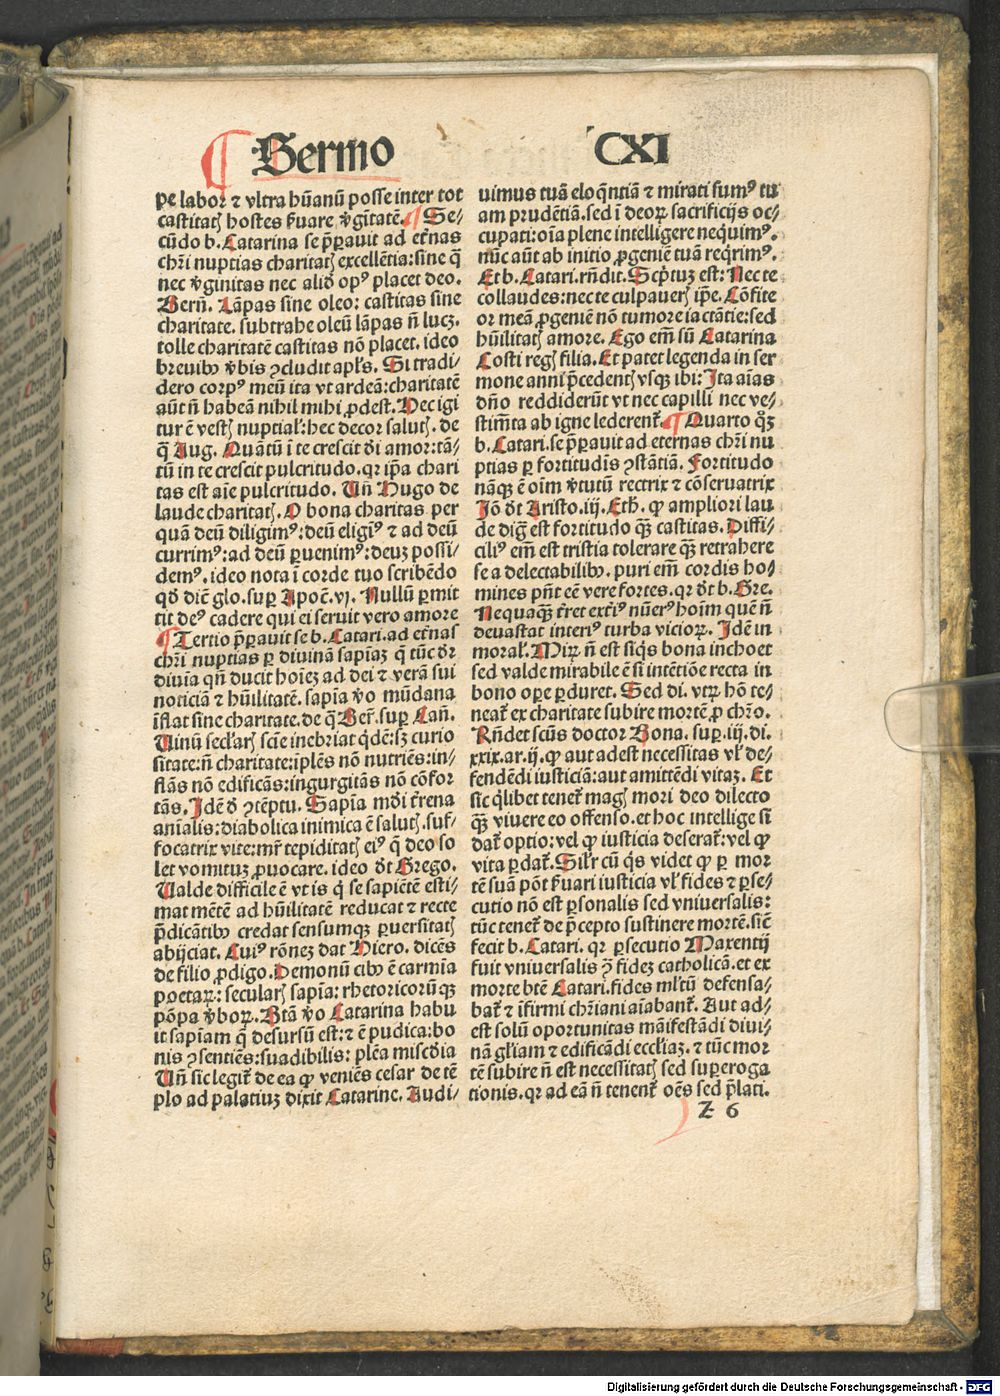 Sermo CXI
pe labor ⁊ vltra hūanū posse inter tot
castitatꝭ hostes ẜuare v̾gītatē. ¶ Se⸗
cūdo b. Catarina se p̄parauit ad et̾nas
chr̄i nuptias charitatꝭ excellētia: sine q̄
nec v̾ginitas nec aliđ opꝰ placet deo.
Bern̄. Lāpas sine oleo: castitas sine
charitate. subtrahe oleū lāpas n̄ lucꝫ.
tolle charitatē castitas nō placet. ideo
breuibꝰ v̾bis ꝯcludit apl̄s. Si tradi⸗
dero corpꝰ meū ita vt ardeā: charitatē
aūt n̄ habeā nihil mihi ꝓdest. Hec igi
tur ē vestꝭ nuptial̓: hec decor salutꝭ. de
q̄ Aug. Quātū ī te crescit di̾ amor: tā⸗
tū in te crescit pulcritudo. qr ip̄a chari
tas est aīe pulcritudo. Vn̄ Hugo de
laude charitatꝭ. O bona charitas per
quā deū diligimꝰ: deū eligiꝰ ⁊ ad deū
currimꝰ: ad deū ꝑuenimꝰ: deuꝫ possi⸗
demꝰ. ideo nota ī corde tuo scribēdo
qđ dic̄ glo. suꝑ Apoc̄. vj. Nullū ꝑmit
tit deꝰ cadere qui ei seruit vero amore
¶ Tertio p̄parauit se b. Catari. ad et̾nas
chr̄i nuptias ꝑ diuinā sapīaꝫ q̄ tūc dr̄
diuīa qn̄ ducit hoīeꝫ ad dei ⁊ verā sui
noticiā ⁊ hūilitatē. sapīa v̾o mūdana
īflat sine charitate. de q̄ Ber̄. suꝑ Can̄.
Vinū secl̓arꝭ scīe inebriat qđē: sꝫ curio
sitate: n̄ charitate: iplēs nō nutriēs: in⸗
flās nō edificās: ingurgitās nō cōfor
tās. Idē đ ꝯtēptu. Sapīa mūdi t̾rena
aīalis: diabolica inimica ē salutꝭ. suf⸗
focatrix vite: mr̄ tepiditatꝭ eiꝰ q̄ deo so
let vomituꝫ ꝓuocare. ideo đt Grego.
Valde difficile ē vt is q̄ se sapiētē esti⸗
mat mētē ad hūilitatē reducat ⁊ recte
p̄dicātibꝰ credat sensumqꝫ ꝑuersitatꝭ
abijciat. Cuiꝰ rōneꝫ dat Hiero. dicēs
de filio ꝓdigo. Demonū cibꝰ ē carmīa
poetaꝝ: secularꝭ sapīa: rhetoricorū qꝫ
pōpa v̾boꝝ. Btā v̾o Catarina habu
it sapīam q̄ desursū est: ⁊ ē pudica: bo
nis ꝯsentiēs: suadibilis: plēa miscđia
Vn̄ sic legit̾ de ea ꝙ veniēs cesar de tē
plo ad palatiuꝫ dixit Catarine. Audi⸗
uimus tuā eloq̄ntiā ⁊ mirati sumꝰ tu
am prudētiā. sed ī deoꝝ sacrificijs oc⸗
cupati: oīa plene intelligere nequimꝰ.
nūc aūt ab initio ꝓgeniē tuā req̄rimꝰ.
Et b. Catari. rn̄dit. Scp̄tuꝫ est: Nec te
collaudes: nec te culpauerꝭ ip̄e. Cōfite
or meā ꝓgeniē nō tumore iactātie: sed
hūilitatꝭ amore. Ego em̄ sū Catarina
Costi regꝭ filia. Et patet legenda in ser
mone anni p̄cedentꝭ vsqꝫ ibi: Ita aīas
dn̄o reddiderūt vt nec capilli nec ve⸗
stim̄ta ab igne lederent̾. ¶ Quarto q̊ꝫ
b. Catari. se p̄parauit ad eternas chr̄i nu
ptias ꝑ fortitudīs ꝯstātiā. Fortitudo
nāqꝫ ē oīm v̾tutū rectrix ⁊ cōseruatrix
Iō đt Aristo. iij. Eth̄. ꝙ ampliori lau
de dig̊ est fortitudo qꝫ castitas. Diffi⸗
ciliꝰ em̄ est tristia tolerare qꝫ retrahere
se a delectabilibꝰ. puri em̄ cordis ho⸗
mines pn̄t eē vere fortes. qr đt b. Gre.
Nequaqꝫ t̾ret ext̾iꝰ nūerꝰ hoīm quē n̄
deuastat interiꝰ turba vicioꝝ. Idē in
moral̓. Miꝝ n̄ est siq̊s bona inchoet
sed valde mirabile ē si intētiōe recta in
bono oꝑe ꝑduret. Sed di. vtꝝ hō te⸗
neat̾ ex charitate subire mortē ꝓ chr̄o.
Rn̄det scūs doctor Bona. suꝑ. iij. di.
xxix. ar. ij. ꝙ aut adest necessitas vl̓ de⸗
fendēdi iusticiā: aut amittēdi vitaꝫ. Et
sic q̊libet tenet̾ magꝭ mori deo dilecto
qꝫ viuere eo offenso. et hoc intellige si
dat̾ optio: vel ꝙ iusticia deserat̾: vel ꝙ
vita ꝑdat̾. Sil̓r cū q̊s videt ꝙ ꝑ mor
tē suā pōt ẜuari iusticia vl̓ fides ⁊ ꝑse⸗
cutio nō est ꝑsonalis sed vniuersalis:
tūc tenet̾ de p̄cepto sustinere mortē. sic̄
fecit b. Catari. qr ꝑsecutio Maxentij
fuit vniuersalis ꝯ̄ fideꝫ catholicā. et ex
morte btē Catari. fides ml̓tū defensa⸗
bat̾ ⁊ īfirmi chr̄iani aīabant̾. Aut ad⸗
est solū oportunitas māifestādi diui⸗
nā gl̓iam ⁊ edificādi eccl̓iaꝫ. ⁊ tūc mor
tē subire n̄ est necessitatꝭ sed suꝑeroga
tionis. qr ad eā n̄ tenent̾ oēs sed p̄lati.
Z 6
Digitalisierung gefördert durch die Deutsche Forschungsgemeinschaft - DFG